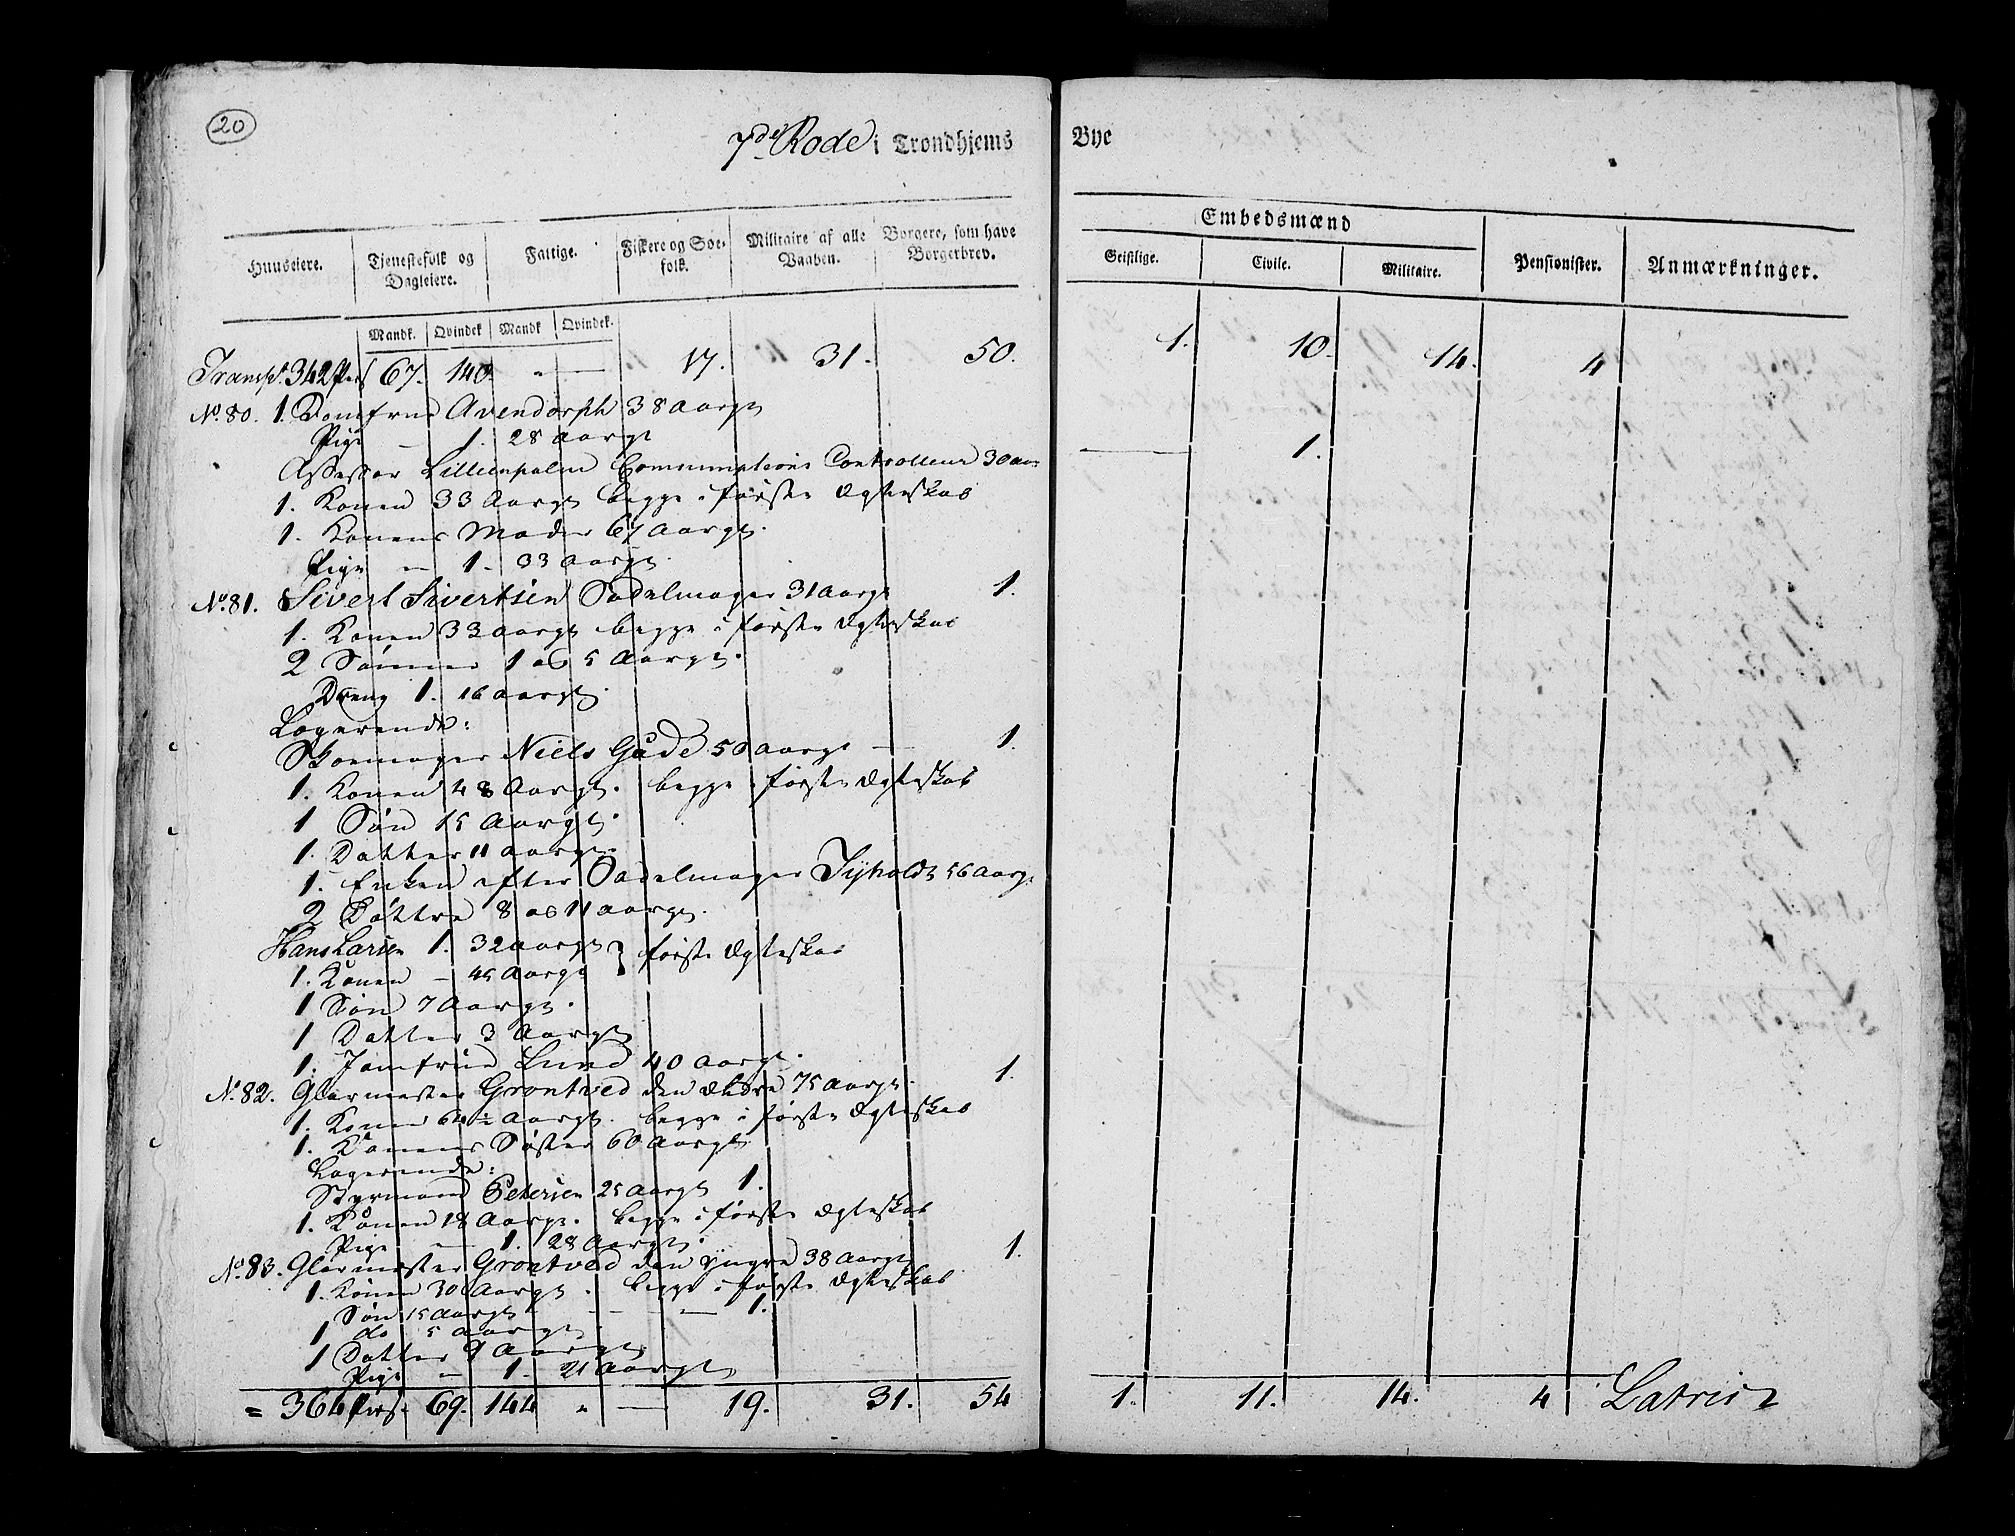 20
7de Rode i Trondhjems Bye
Huuseiere. Tjenestefolk og Dagleiere. Fattige. Fiskere og Søe-folk. Militaire af alle Vaaben. Borgere, som have Borgerbrev. Embedsmænd Geistlige. Civile. Militaire. Pensionister. Anmærkninger.
Mandk. Qvindek Mandk Qvindek.
Transpt. 342 Pers 67. 140. " — 17. 31. 50. 1. 10. 14. 4
No. 80. 1. Jomfrue Avendorph 38 Aargl
Pige — 1. 28 Aargl
Assessor Lillienpalm Consumptions Controlleur 30 aar — 1.
1. Konen 33 Aargl begge i første Ægteskab
1. Konens Moder 67 Aargl.
Pige — 1. 33 Aargl.
No. 81. Sivert Sivertsen Sadelmager 31 Aargl 1.
1. Konen 33 aargl begge i første Ægteskab
2 Sønner 1 og 5 Aargl.
Dreng 1. 16 aargl.
Logerende:
Skoemager Niels Gade 50 aargl — 1.
1. Konen 48 Aargl. begge i første Ægteskab
1 Søn 15 Aargl.
1. Datter 11 aargl.
1. Enken efter Sadelmager Tyholdt 56 Aargl
2 Døttre 8 og 11 aargl.
Hans Larsen 1. 32 aargl } første Ægteskab
1. Konen — 45 Aargl
1 Søn 7 Aargl.
1 Datter 3 Aargl
1. Jomfrue Lund 40 aargl.
No. 82. Glarmester Grontved den ældre 75 aargl. 1.
1. Konen 64½ Aargl. begge i første Ægteskab
1. Konens Søster 60 Aargl
Logerende:
Styrmand Petersen 25 Aargl 1.
1. Konen 18 Aargl. begge i første Ægteskab
Pige — 1. 28 Aargl.
No. 83. Glarmester Grontved den yngre 38 Aargl 1.
1. Konen 30 Aargl. begge i første Ægteskab
Søn 15 Aargl — — — 1.
1 do 5 aargl
1 Datter 9 Aargl
Pige — 1. 21 Aargl
= 364 Pers. 69. 144 " — 19. 31. 54 1. 11. 14. 4 Latris